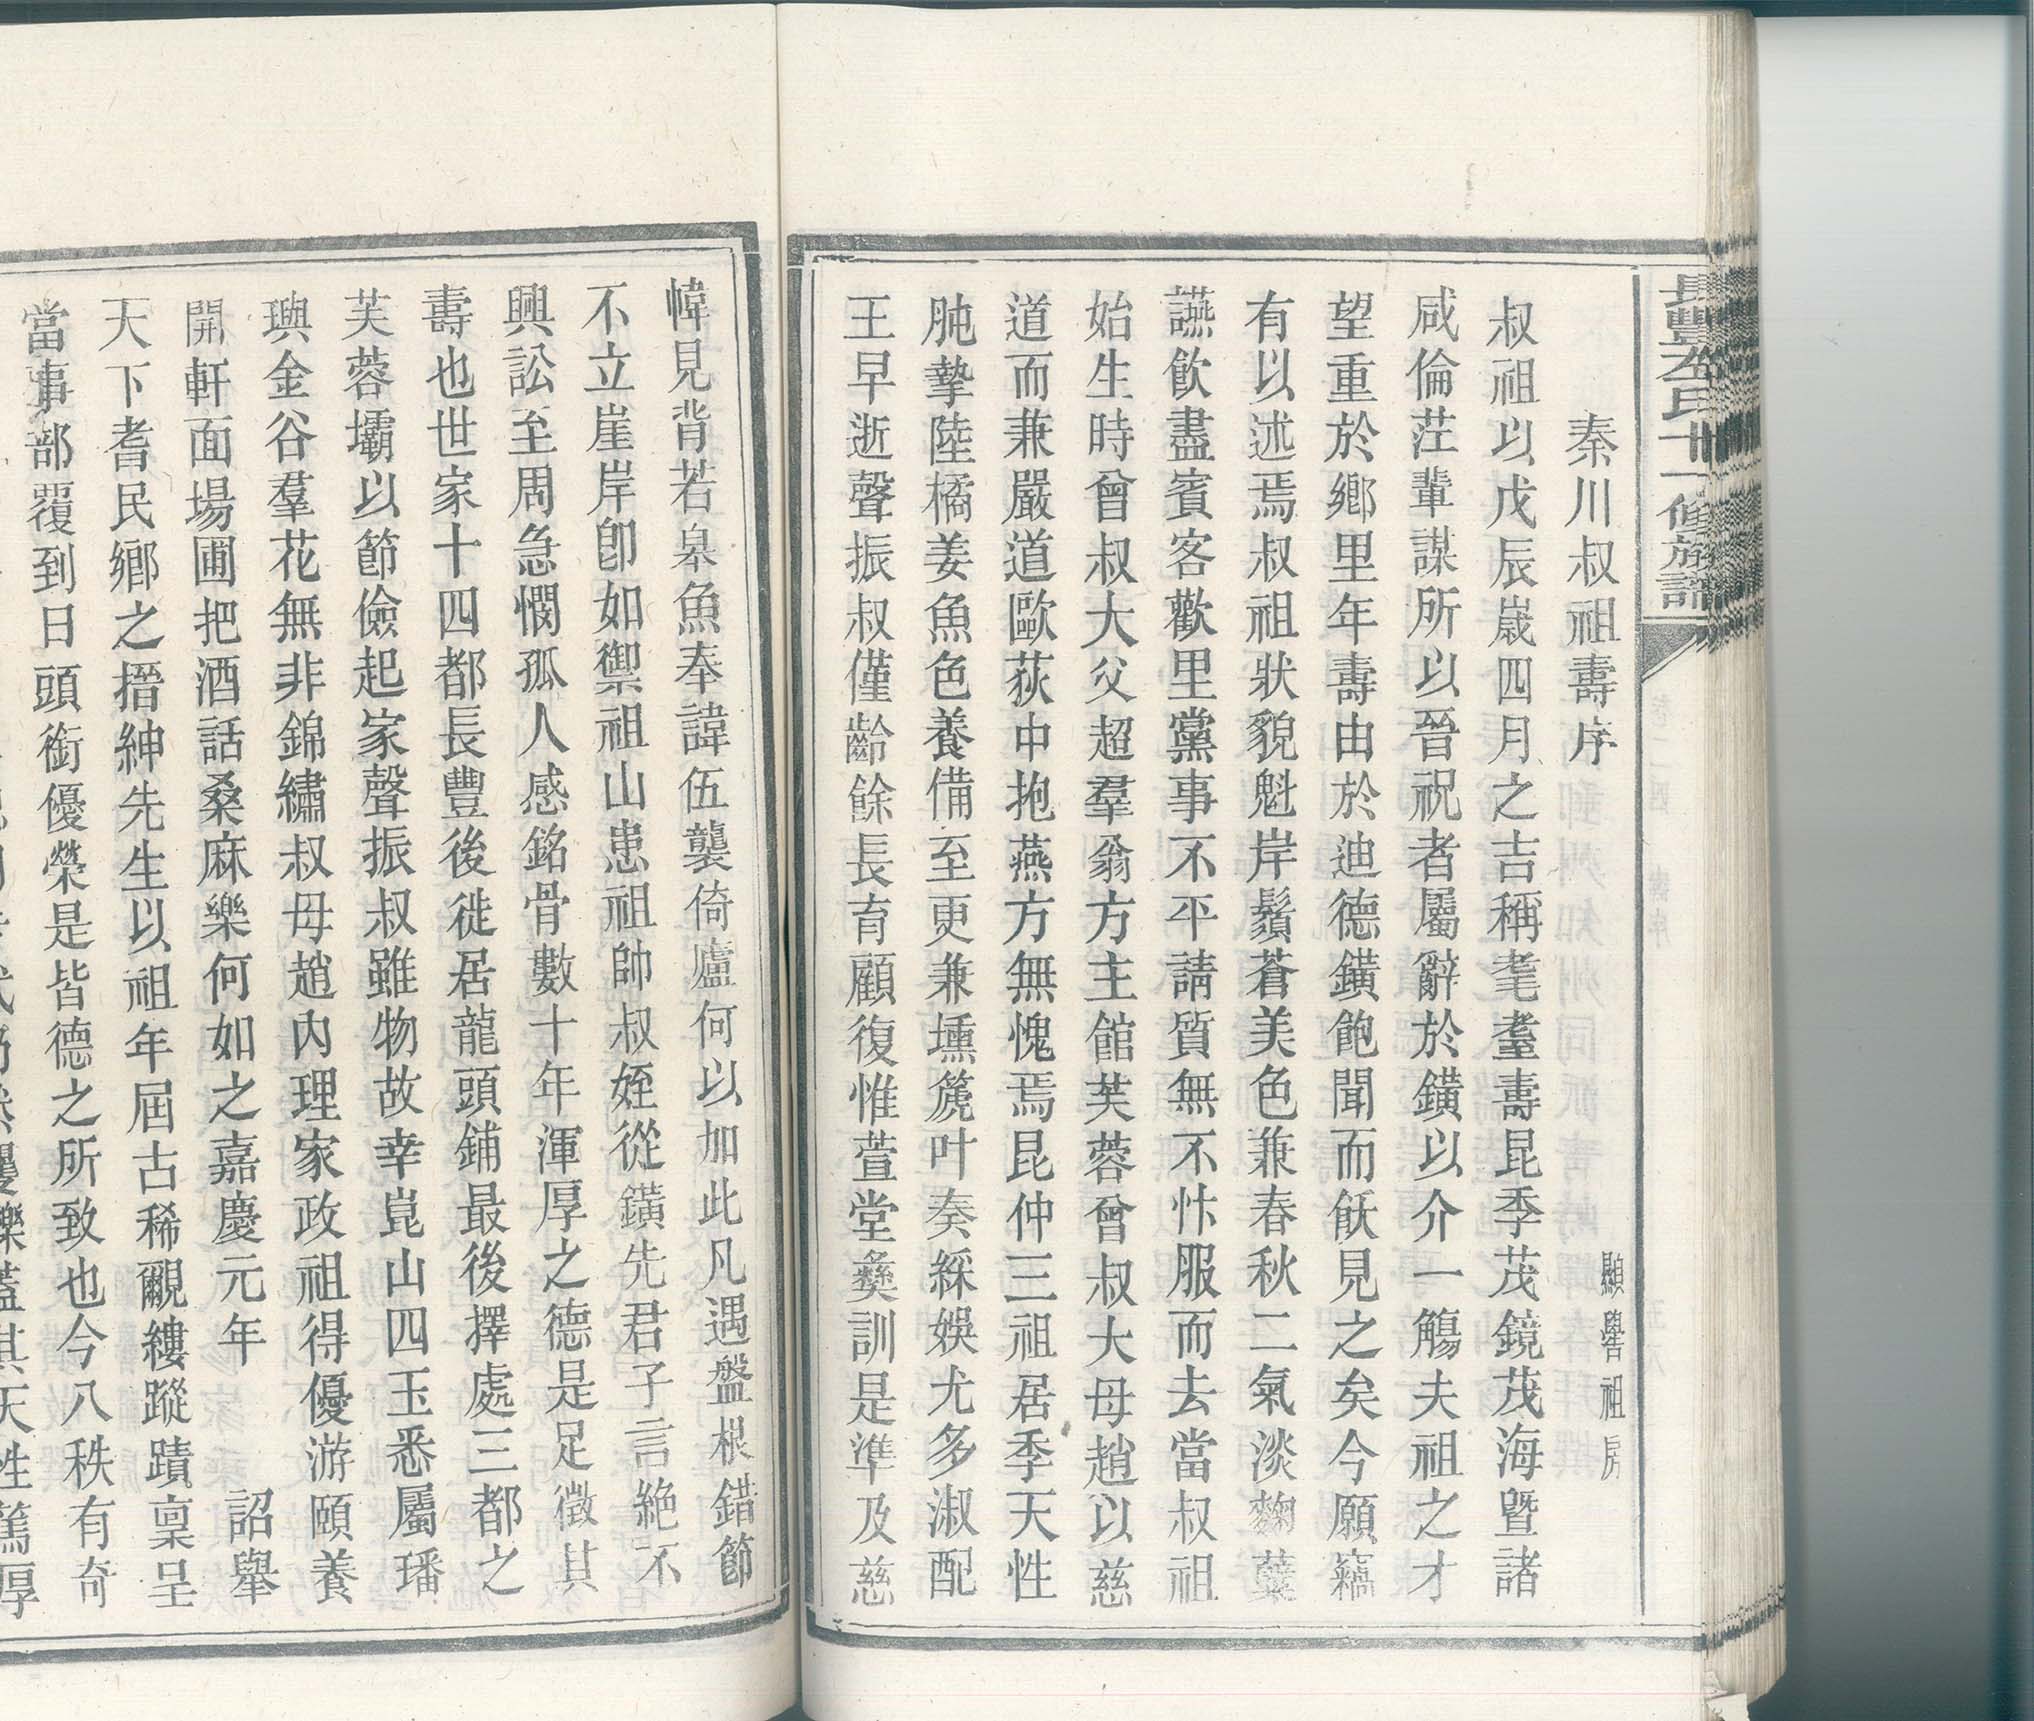 秦川叔祖壽序
顯譽祖房
叔祖以戊辰歲四月之吉稱耄耋壽昆季茂鏡茂海暨諸
咸倫茳輩謀所以晉祝者屬辭於鐄以介一觴夫祖之才
望重於鄉里年壽由於迪德鐄飽聞而飫見之矣今願竊
有以述焉叔祖狀貌魁岸鬚蒼美色兼春秋二氣淡麴蘖
讌飲盡賓客歡里黨事不平請質無不忭服而去當叔祖
始生時曾叔大父超羣翁方主館芙蓉曾叔大母趙以慈
道而兼嚴道歐荻中抱燕方無愧焉昆仲三祖居季天性
肫摯陸橘姜魚色養備至更兼壎箎叶奏綵娛尤多淑配
王早逝聲振叔僅齡餘長育顧復惟萱堂彝訓是準及慈
幃見背若皋魚奉諱伍襲倚廬何以加此凡遇盤根錯節
不立崖岸卽如禦祖山患祖帥叔姪從鐄先君子言絶不
興訟至周急憫孤人感銘骨數十年渾厚之德是足徵其
壽也世家十四都長豐後徙居龍頭鋪最後擇處三都之
芙蓉壩以節儉起家聲振叔雖物故幸崑山四玉悉屬璠
璵金谷羣花無非錦繡叔母趙內理家政祖得優游頤養
開軒面場圃把酒話桑麻樂何如之嘉慶元年 詔舉
天下耆民鄉之搢紳先生以祖年屆古稀覼縷蹤蹟稟呈
當事部覆到日頭銜優榮是皆德之所致也今八秩有奇
矍鑠蓋其天性篤厚